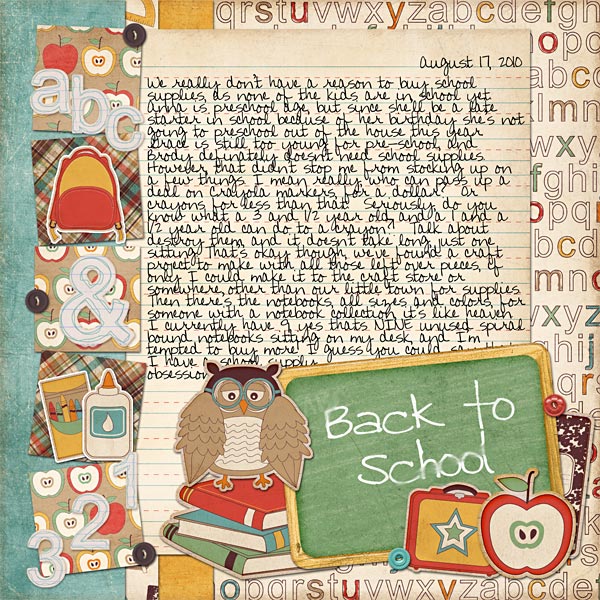 abc
&
321
August 17, 2010
We really don't have a reason to buy school
supplies, as none of the kids are in school yet.
Anna is preschool age, but since she'll be a late
starter in school because of her birthday she's not
going to preschool out of the house this year.
Grace is still too young for pre-school, and
Brody definately doesn't need school supplies.
However, that didn't stop me from stocking up on
a few things. I mean really, who can pass up a
deal on Crayola markers for a dollar? Or
crayons for less than that! Seriously, do you
know what a 3 and 1/2 year old, and a 1 and a
1/2 year old can do to a crayon? Talk about
destroy them, and it doesn't take long, just one
sitting! That's okay though, we've found a craft
project to make with all those left over pieces, if
only I could make it to the craft store, or
somewhere other than our little town for supplies.
Then there's the notebooks, all sizes, and colors, for
someone with a notebook collection it's like heaven.
I currently have 9, yes that's NINE unused spiral
bound notebooks sitting on my desk, and I'm
tempted to buy more! I guess you could
I have a school supply
obsession
Back to
School
qrstuvwxyzabcdefgh
opqrstuvwxyzabcdef